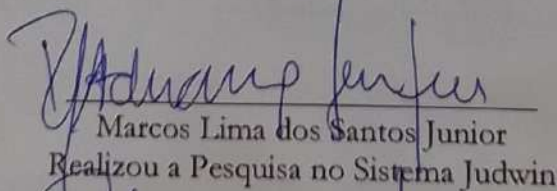 Marcos Lima dos Santos Junior
Realizou a Pesquisa no Sistema Judwin